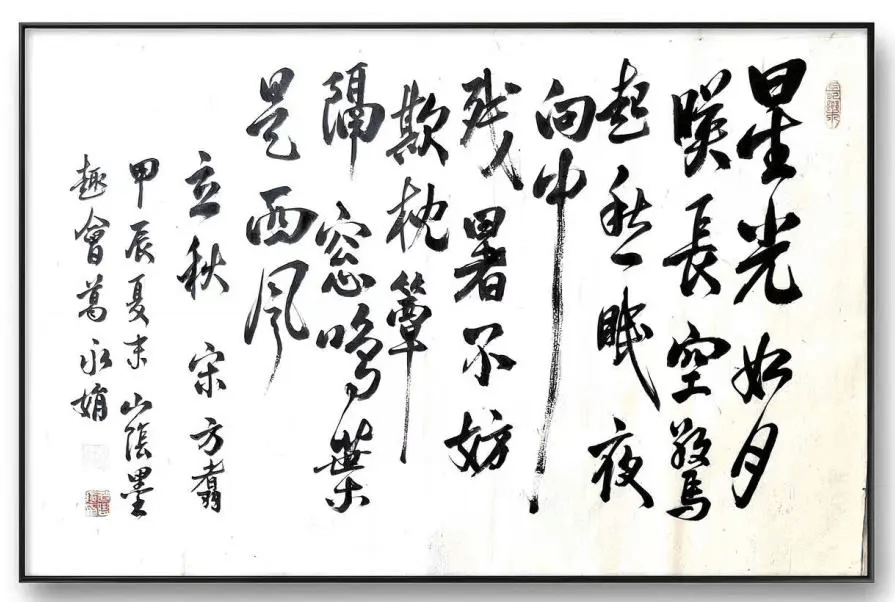 星光如月
映長空驚
起愁眠夜
向中
残暑不妨
欺枕簟
隔窓鳴葉
是西风
立秋 宋 方翥
甲辰夏末 山陰墨
趣會葛永娟